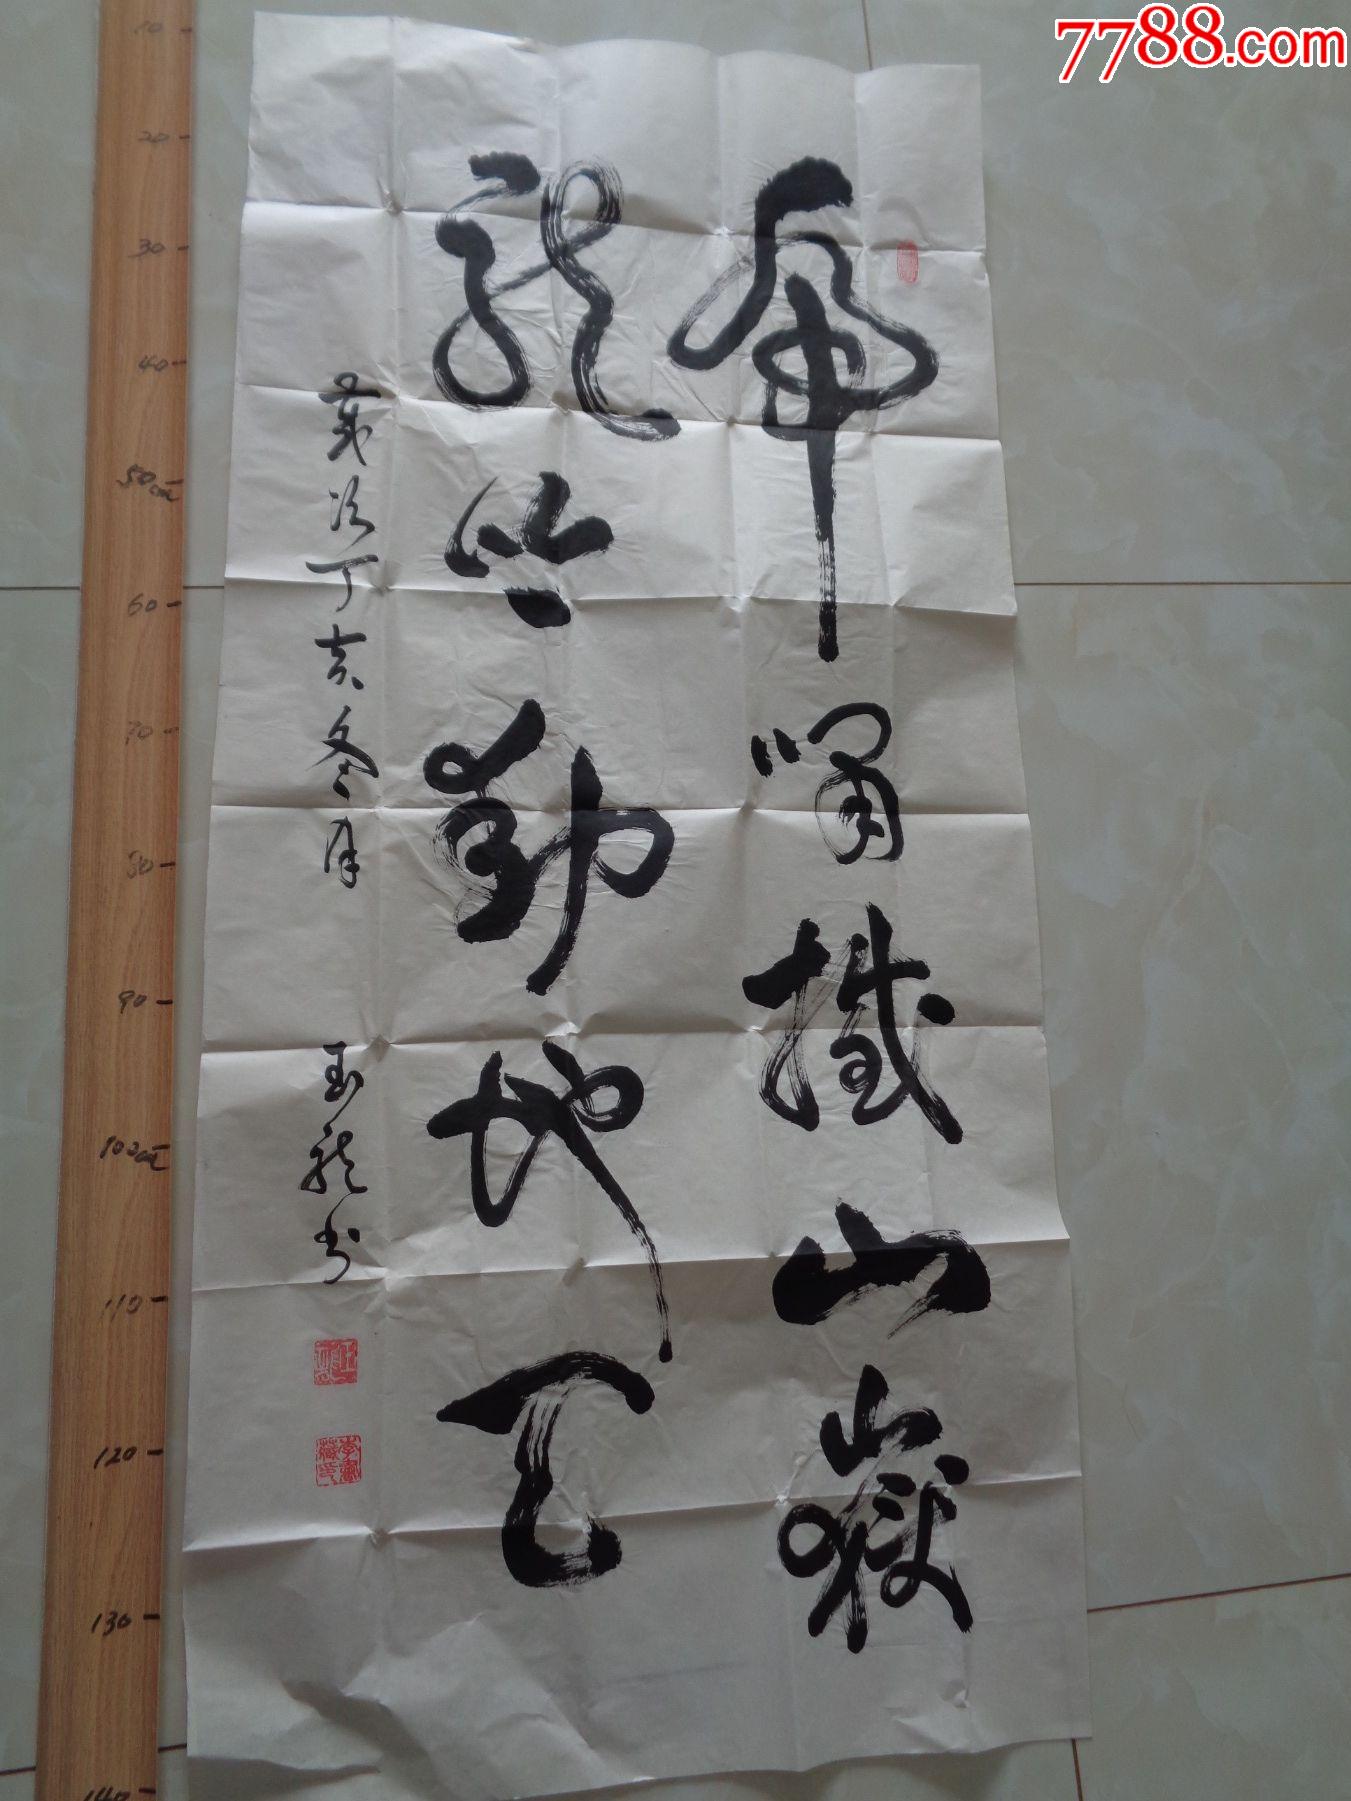 7788.com
虎嘯撼山嶽
龍吟動地天
歲次丁亥冬月 玉龍书
10
20
30
40
50cm
60
70
80
90
100cm
110
120
130
140